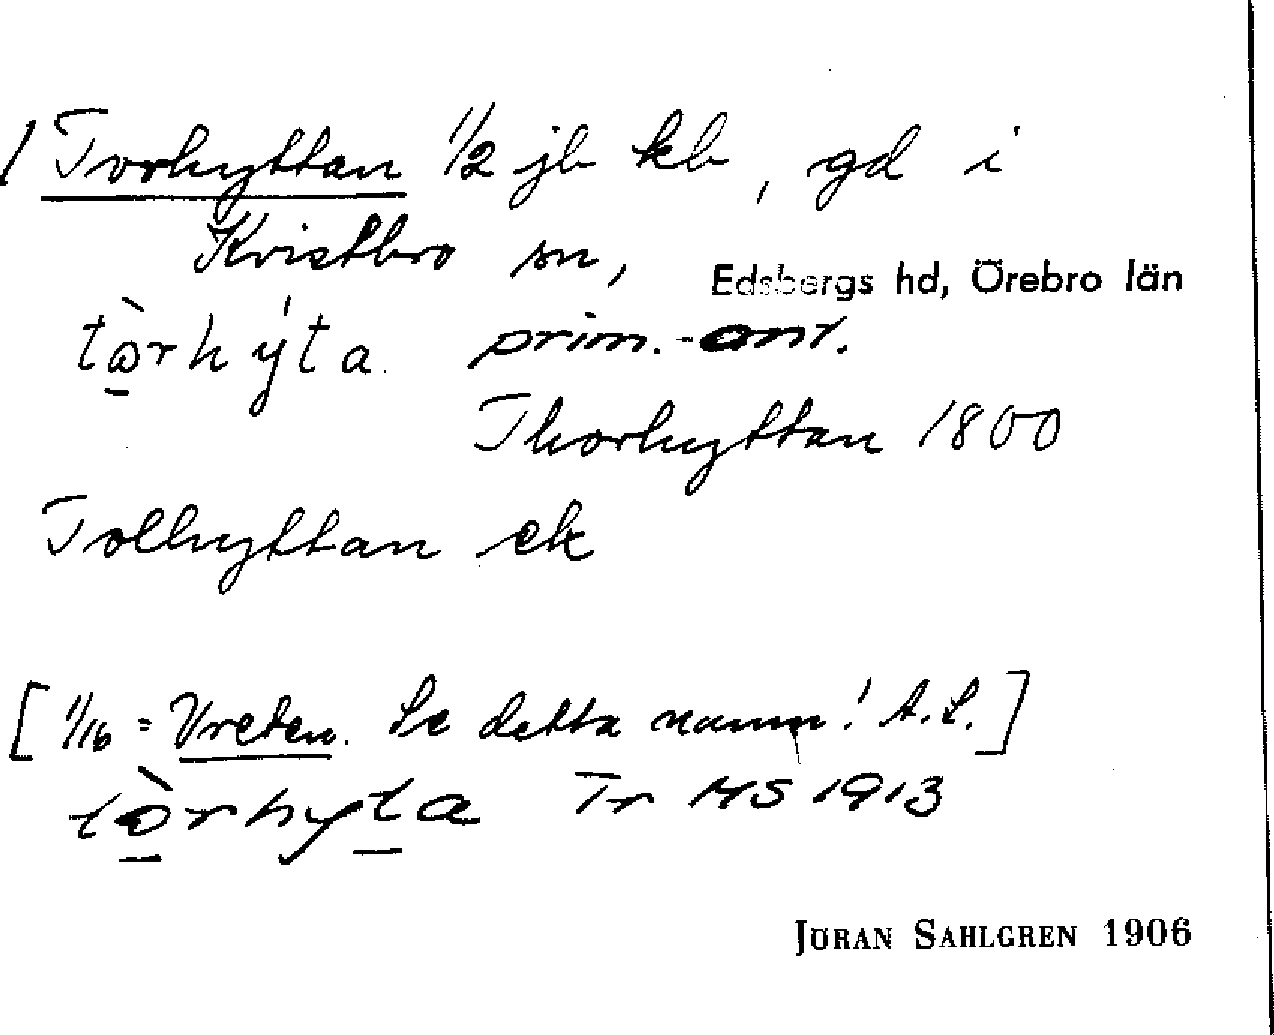 / Torhyttan 1/2 jb kb, gd i
Kvistbro sn, Edsbergs hd, Örebro län
tò̱rhýta. prim.-ant.
Thorhyttan 1800
Tolhyttan ek
[1/16 = Vreten. Se detta namn! A.L.]
tò̱rhyṯa Tr MS 1913
JÖRAN SAHLGREN 1906